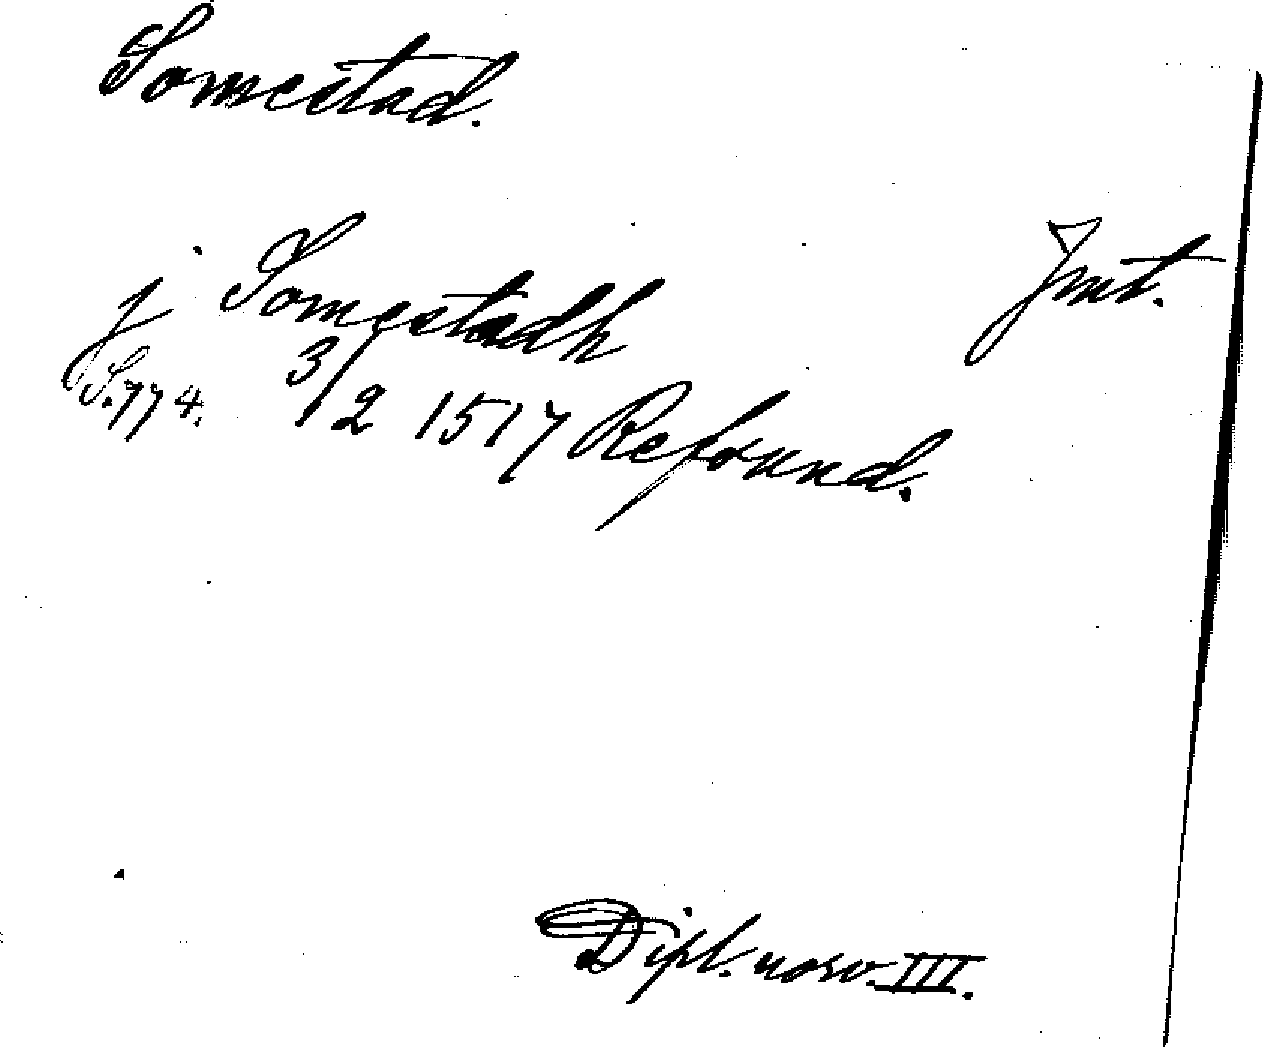 Somestad.
Jmt.
j Somestadh
S. 774. 3/2 1517 Refsund.
Dipl. norv. III.